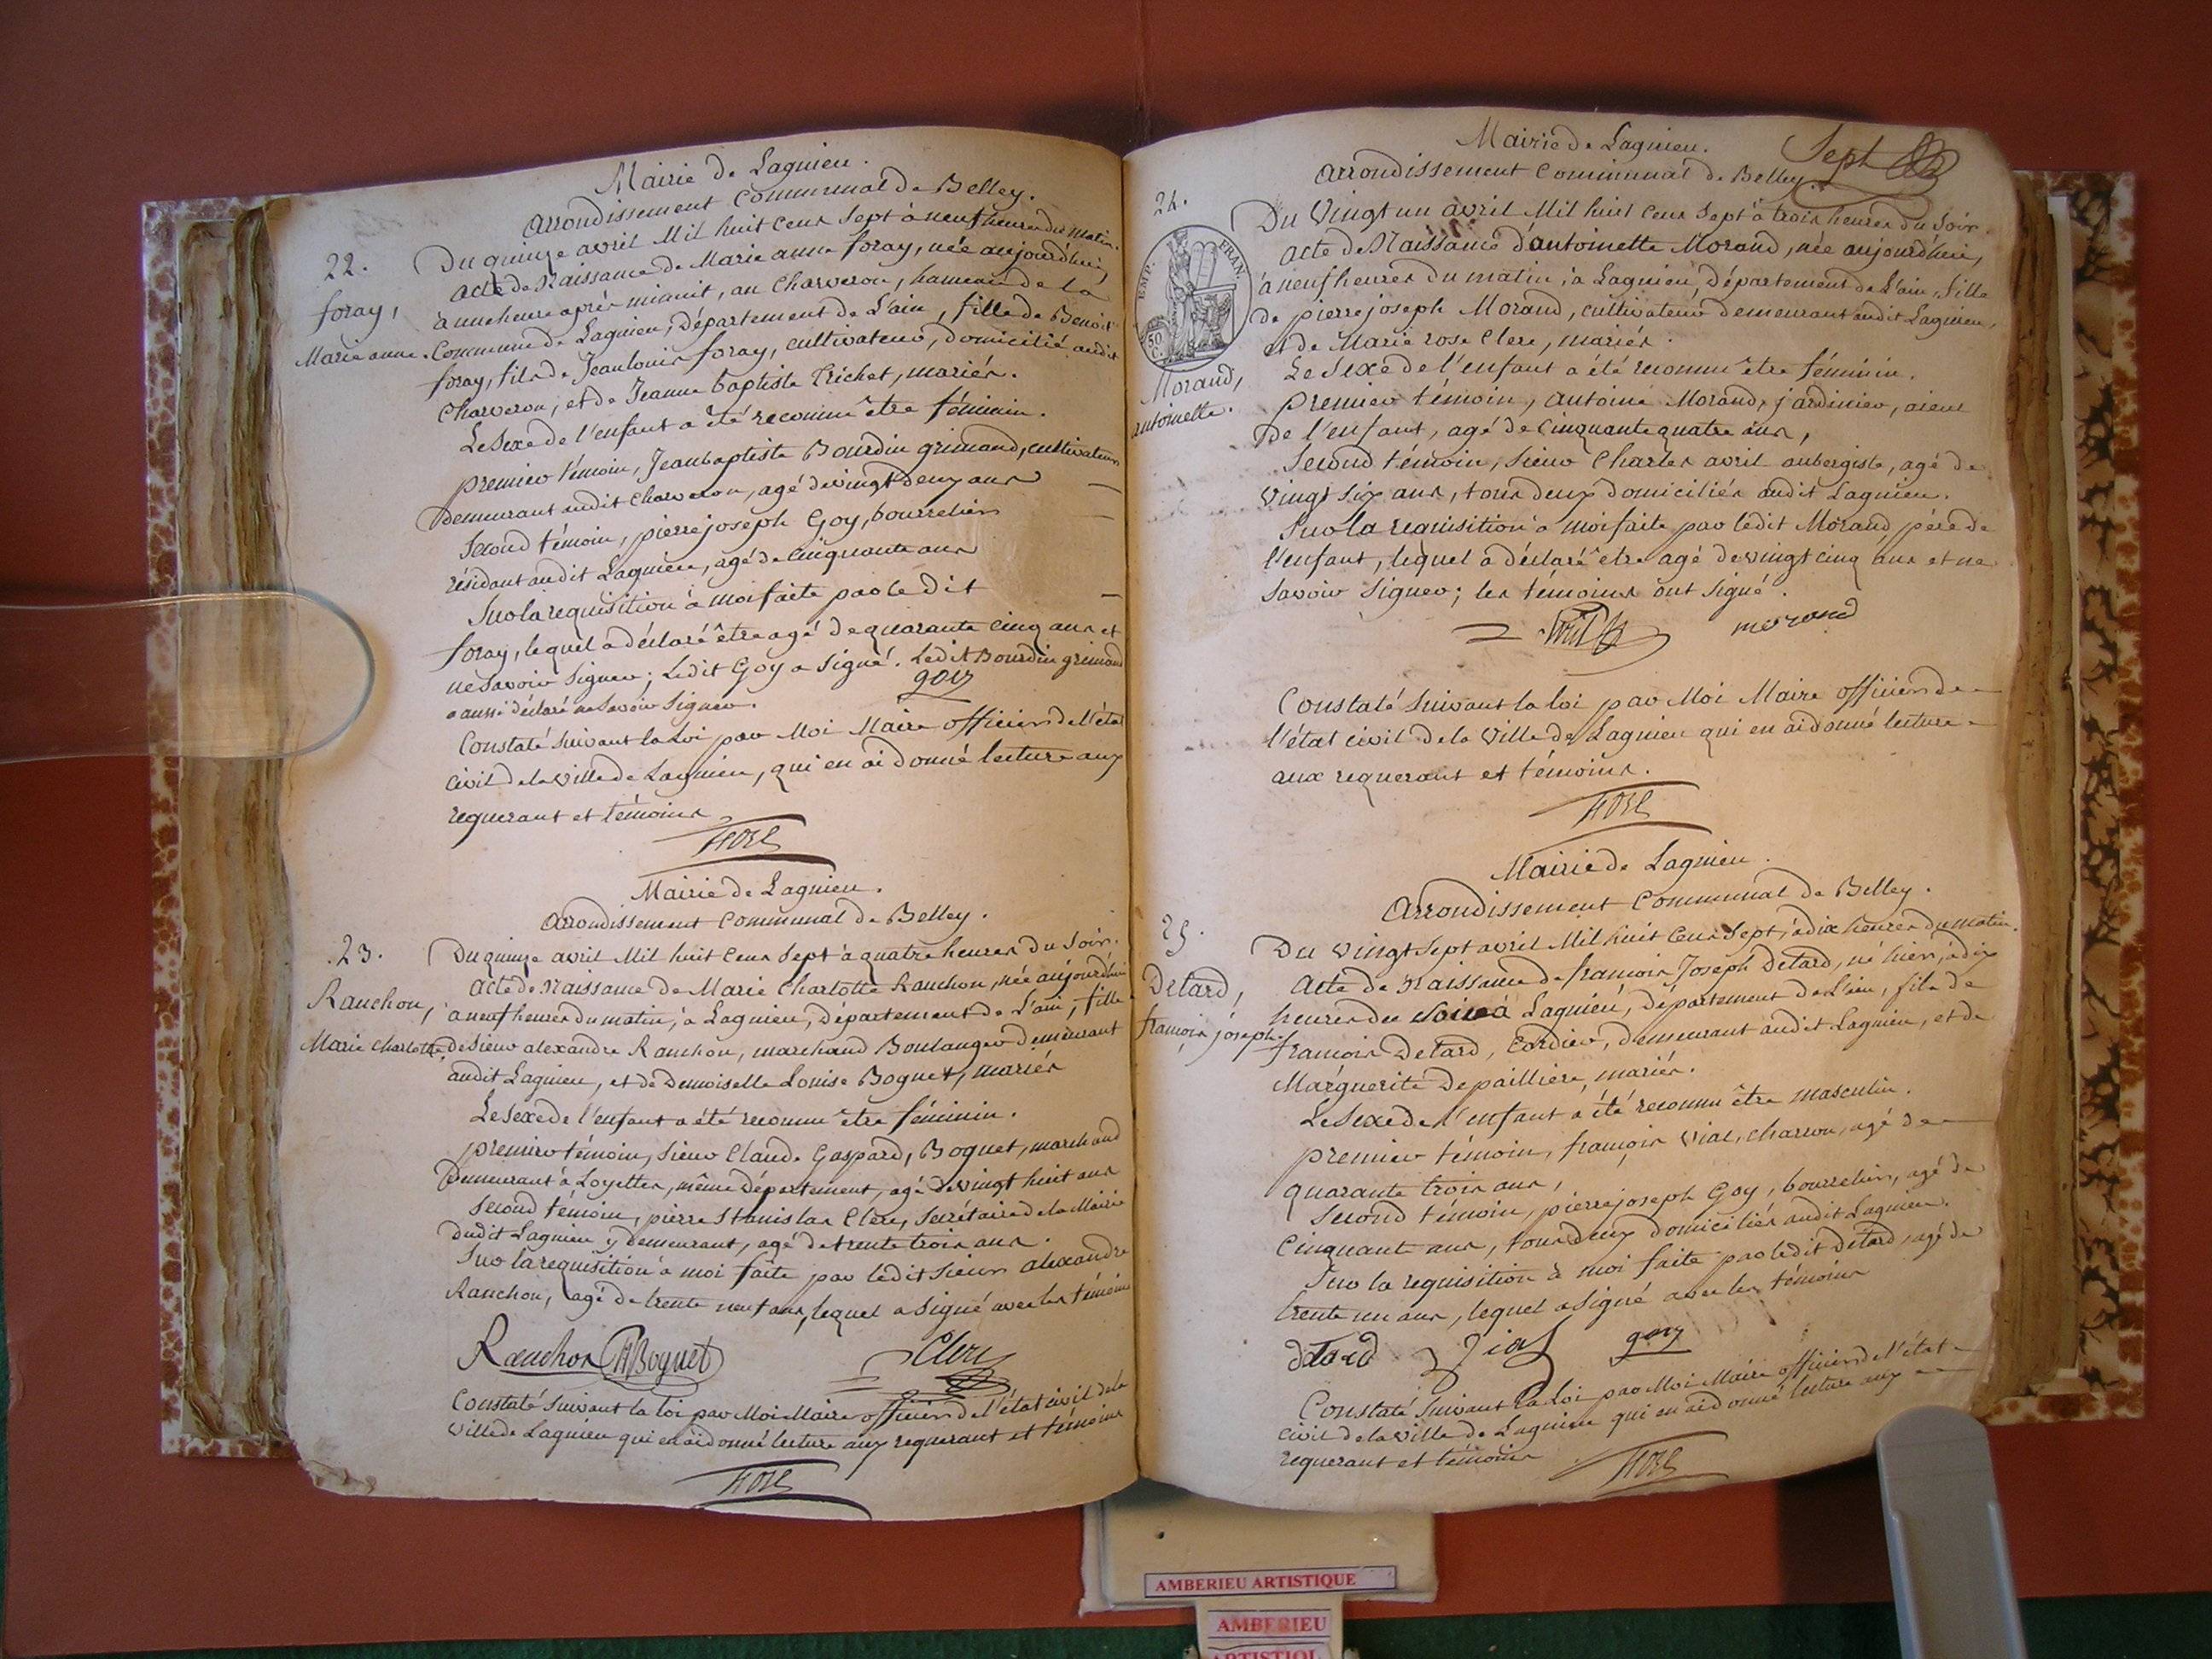 Mairie de Lagnieu.
Arrondissement Communal de Belley.
22.
foray,
Marie anne.
Du quinze avril Mil huit cens sept à neuf heures du matin.
Acte de Naissance de Marie anne foray, née aujourd'hui,
à une heure après minuit, au Charveron, hameau de la
Commune de Lagnieu, département de L'ain, fille de Benoit
foray, fils de Jean louis foray, cultivateur, domicilié audit
Charveron, et de Jeanne baptiste Trichet, mariés.
Le Sexe de l'enfant a été reconnu être féminin.
premier témoin, Jean baptiste Bourdin grimaud, cultivateur
demeurant audit Charveron, agé de vingt deux ans
Second témoin, pierre joseph Goy, bourrelier
résidant audit Lagnieu, agé de cinquante ans
Sur la requisition à moi faite par le dit
foray, lequel a déclaré être agé de quarante cinq ans et
ne Savoir Signer; Ledit Goy a Signé. Ledit Bourdin grimaud
a aussi déclaré ne Savoir Signer.
goy
Constaté Suivant la Loi par Moi Maire officier de l'état
civil de la ville de Lagnieu, qui en ai donné lecture aux
requerant et témoins
Mairie de Lagnieu.
Arrondissement Communal de Belley.
23.
Ranchon,
Marie Charlotte.
Du quinze avril Mil huit cens Sept à quatre heures du Soir.
Acte de Naissance de Marie Charlotte Ranchon, née aujourd'hui
a neuf heures du matin, à Lagnieu, Département de L'ain, fille
de Sieur alexandre Ranchon, marchand Boulanger demeurant
audit Lagnieu, et de Demoiselle Louise Boguet, mariés
Le Sexe de l'enfant a été reconnu être féminin.
premier témoin, Sieur Claude Gaspard, Boguet, marchand
Demeurant à Loyettes, même Département, agé de vingt huit ans
Second témoin, pierre Stanislas Clerc, Secrétaire de la Mairie
dudit Lagnieu y demeurant, agé de trente trois ans.
Sur la requisition à moi faite par ledit Sieur alexandre
Ranchon, agé de trente neuf ans, lequel a Signé avec les témoins
Ranchon Boguet Clerc
Constaté Suivant la loi par Moi Maire officier de l'état civil de la
ville de Lagnieu qui en ai donné lecture aux requerant et témoins
Mairie de Lagnieu.
Sept
Arrondissement Communal de Belley.
24.
EMP. FRAN.
50 C.
Morand,
antoinette.
Du Vingt un avril Mil huit cens Sept à trois heures du Soir.
Acte de Naissance d'antoinette Morand, née aujourd'hui,
à neuf heures du matin, à Lagnieu, Département de L'ain, fille
de pierre joseph Morand, cultivateur demeurant audit Lagnieu,
et de Marie rose Clerc, mariés.
Le Sexe de l'enfant a été reconnu être féminin.
Premier témoin, Antoine Morand, jardinier, aieul
de l'enfant, agé de cinquante quatre ans,
Second témoin, Sieur Charles avril aubergiste, agé de
vingt Six ans, tous deux domiciliés audit Lagnieu.
Sur la requisition à moi faite par ledit Morand père de
l'enfant, lequel a déclaré être agé de vingt cinq ans et ne
Savoir Signer; les témoins ont Signé.
morand
Constaté Suivant la loi par Moi Maire officier de
l'état civil de la ville de Lagnieu qui en ai donné lecture
aux requerant et témoins.
Mairie de Lagnieu.
Arrondissement Communal de Belley.
25.
Détard,
françois joseph.
Du vingt Sept avril Mil huit cens Sept, à dix heures du matin.
Acte de Naissance de françois Joseph Détard, né hier, à dix
heures du soir à Lagnieu, Département de L'ain, fils de
françois Détard, Cordier, demeurant audit Lagnieu, et de
Marguerite Depaillière, mariés.
Le Sexe de l'enfant a été reconnu être masculin.
premier témoin, françois Vial, charron, agé de
quarante trois ans,
Second témoin, pierre joseph Goy, bourrelier, agé de
cinquante ans, tous deux domiciliés audit Lagnieu.
Sur la requisition à moi faite par ledit Détard, agé de
trente un ans, lequel a Signé avec les témoins
détard Vial goy
Constaté Suivant la Loi par Moi Maire officier de l'état
civil de la ville de Lagnieu qui en ai donné lecture aux
requerant et témoins
AMBERIEU ARTISTIQUE
AMBERIEU
ARTISTIQUE